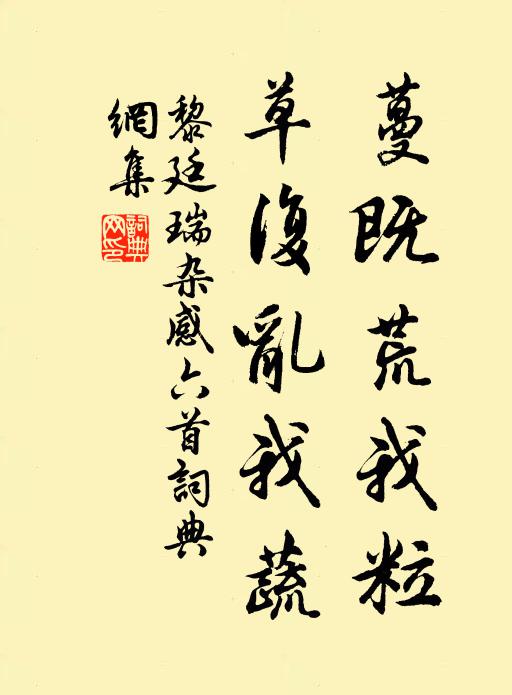 蔓既荒我粒
草復亂我蔬
黎廷瑞杂感六首詞典
網集
詞典網印